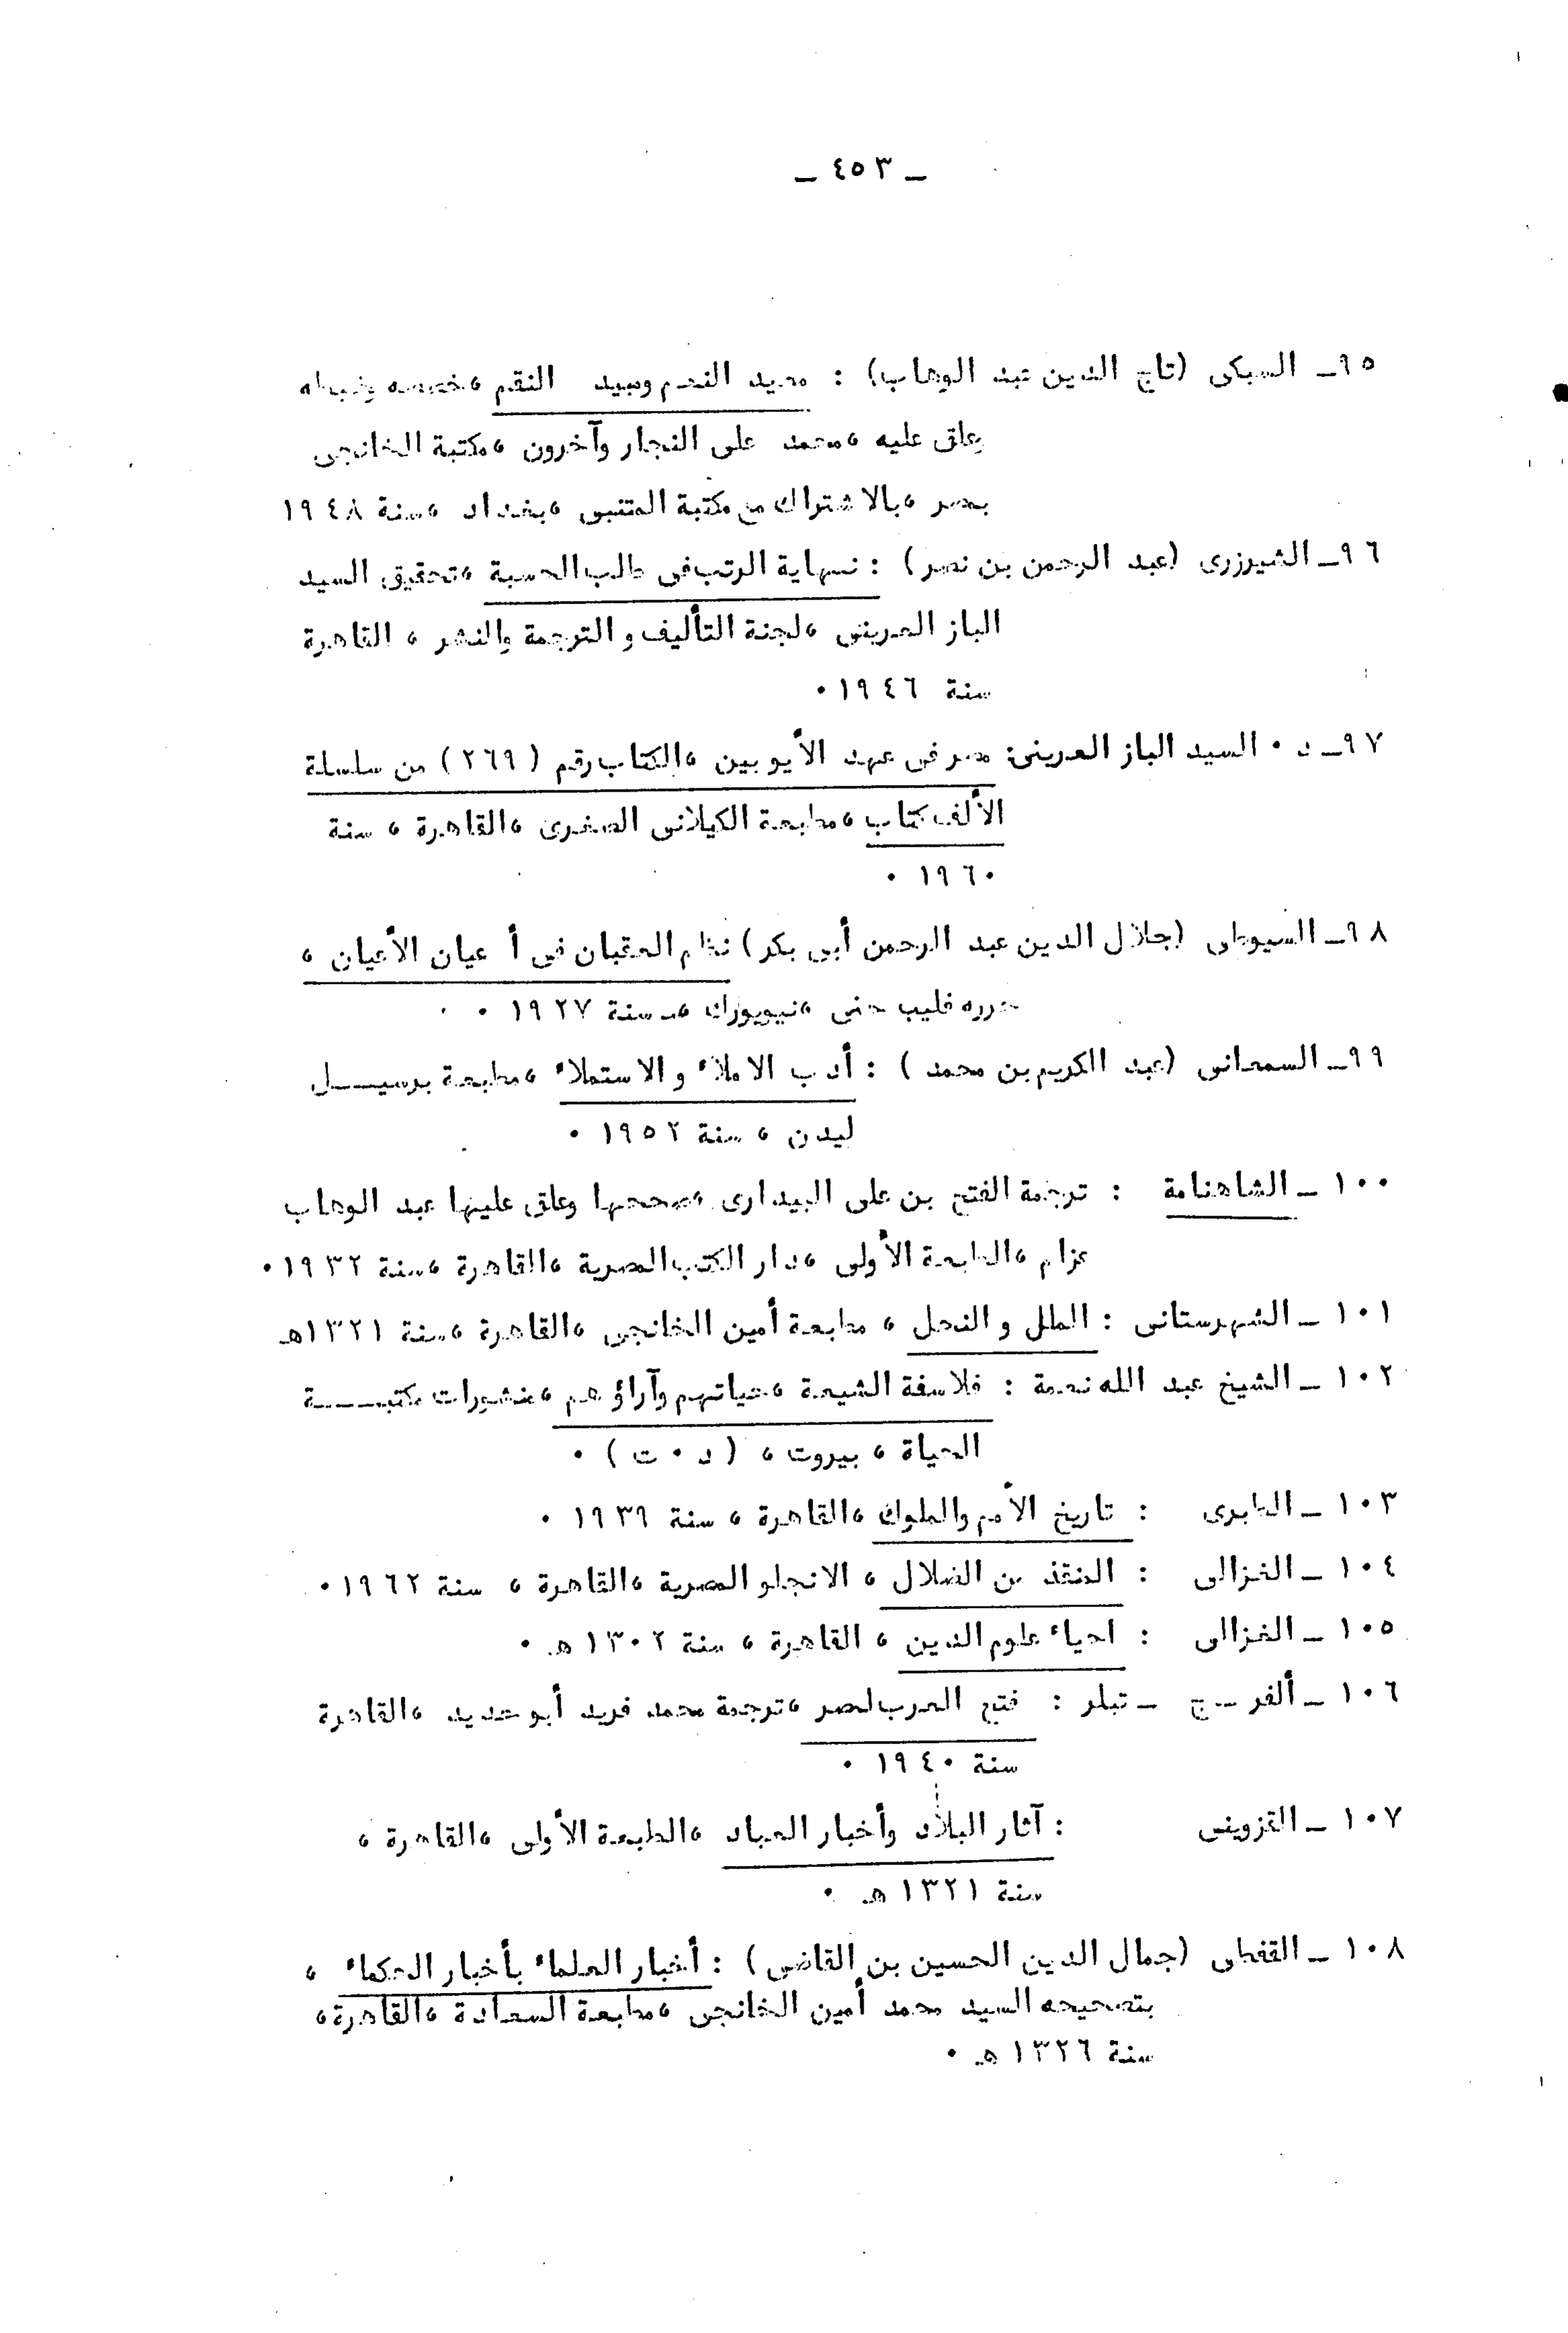 ـ ٤٥٣ ـ
٩٥ـ السبكى (تاج الدين عبد الوهاب) : معيد النعم ومبيد النقم ، وضبطه
وعلق عليه ، محمد على النجار وآخرون ، مكتبة الخانجى
بمصر ، بالاشتراك مع مكتبة المتنبى ، بغداد ، سنة ١٩٤٨
٩٦ـ الشيرزرى (عبد الرحمن بن نصر) : نهاية الرتب فى طلب الحسبة ، تحقيق السيد
الباز العرينى ، لجنة التأليف والترجمة والنشر ، القاهرة
سنة ١٩٤٦ ٠
٩٧ـ د ٠ السيد الباز العرينى: مصر فى عهد الأيوبين ، الكتاب رقم ( ٢٦٩ ) من سلسلة
الألف كتاب ، مطبعة الكيلانى الصغرى ، القاهرة ، سنة
١٩٦٠ ٠
٩٨ـ السيوطى (جلال الدين عبد الرحمن أبى بكر) نظم العقبان فى أ عيان الأعيان ،
حرره فليب حتى ، نيويورك ، سنة ١٩٢٧ ٠
٩٩ـ السمعانى (عبد الكريم بن محمد ) : أدب الاملاء والاستملاء ، مطبعة برسيـــل
ليدن ، سنة ١٩٥٢ ٠
١٠٠ ـ الشاهنامة : ترجمة الفتح بن على البيدارى ، صححها وعلق عليها عبد الوهاب
عزام ، الطبعة الأولى ، دار الكتب المصرية ، القاهرة ، سنة ١٩٣٢ ٠
١٠١ ـ الشهرستانى : الملل و النحل ، مطبعة أمين الخانجى ، القاهرة ، سنة ١٣٢١هـ
١٠٢ ـ الشيخ عبد الله نعمة : فلاسفة الشيعة ، حياتهم وآراؤهم ، منشورات مكتبــــة
الحياة ، بيروت ، ( د ٠ ت ) ٠
١٠٣ ـ الطبرى : تاريخ الأمم والملوك ، القاهرة ، سنة ١٩٣٩ ٠
١٠٤ ـ الغزالى : المنقذ من الضلال ، الانجلو المصرية ، القاهرة ، سنة ١٩٦٢ ٠
١٠٥ ـ الغزالى : احياء علوم الدين ، القاهرة ، سنة ١٣٠٢ هـ ٠
١٠٦ ـ ألفر ـ ج ـ تبلر : فتح العرب لمصر ، ترجمة محمد فريد أبو حديد ، القاهرة
سنة ١٩٤٠ ٠
١٠٧ ـ القزوينى : آثار البلاد وأخبار العباد ، الطبعة الأولى ، القاهرة ،
سنة ١٣٢١ هـ ٠
١٠٨ ـ القفطى (جمال الدين الحسين بن القاضى ) : أخبار العلماء بأخبار الحكماء ،
بتصحيحه السيد محمد أمين الخانجى ، مطبعة السعادة ، القاهرة ،
سنة ١٣٢٦ هـ ٠